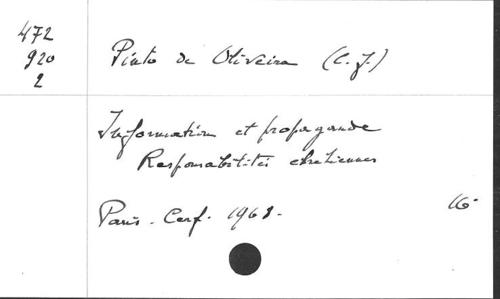 472
920
2
Pinto de Oliveira (C. J.)
Information et propagande
Responsabilités chrétiennes
Paris - Cerf. 1968.
16-